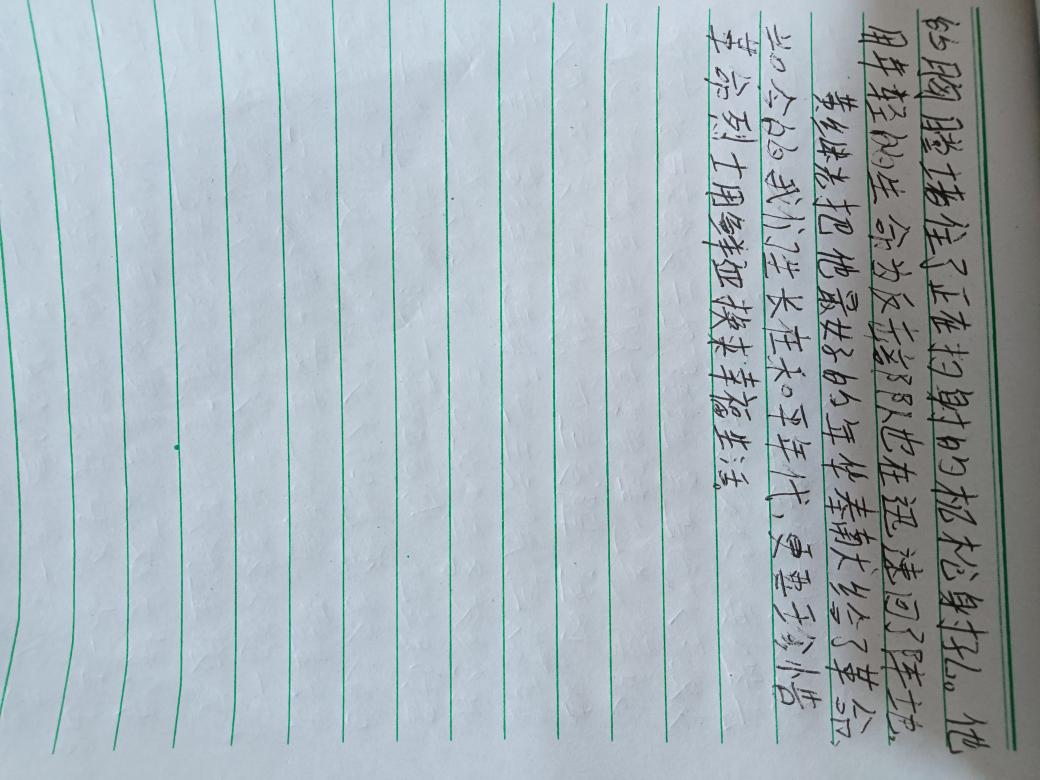 的胸膛堵住了正在扫射的机枪射孔。他
用年轻的生命为反击部队也在迅速回了阵地。
黄继光把他最好的年华奉献给了革命。
当今的我们生长在和平年代、更要
革命烈士用鲜血换来幸福生活。